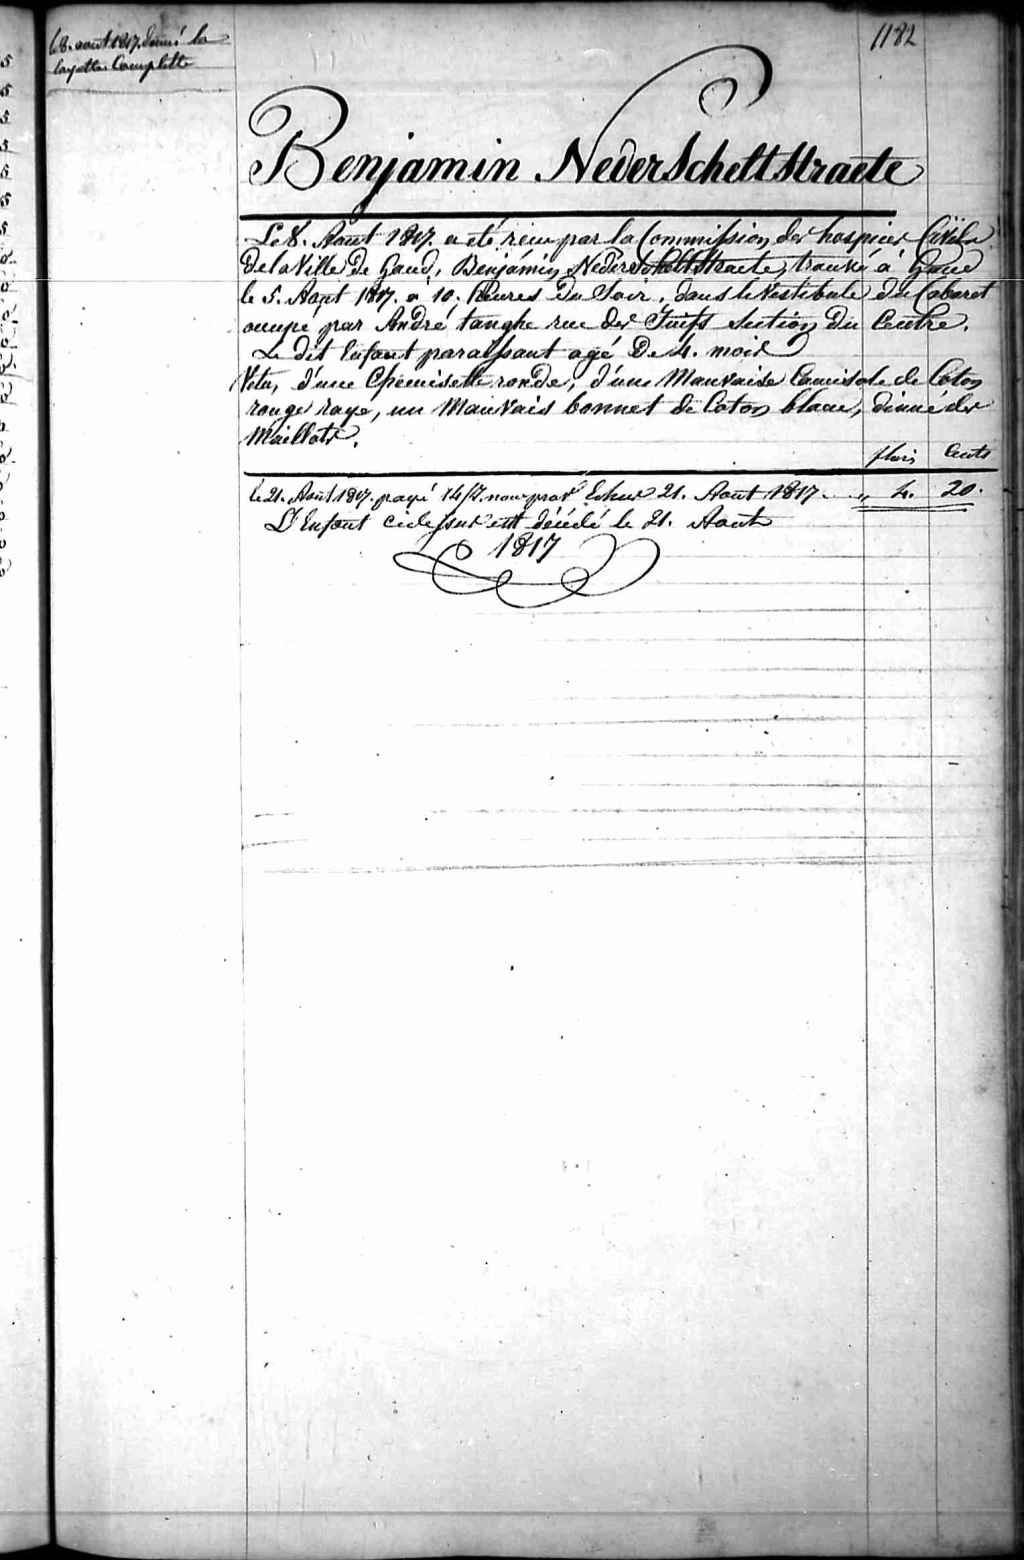 Le 8. aout 1817. donné la
layette Complette
1182
Benjamin NederScheltstraete
Le 8. Aout 1817. a été recu par la Commission des hospices Civils
de la Ville de Gand, Benjamin NederScheltstraete, trouvé à Gand
le 5. Aout 1817. a 10. heures du Soir, dans le Vestibule du Cabaret
occupé par André tanghe rue des Juifs Section du Centre.
Le dit Enfant paraissant agé De 4. mois
Vetu, d'une Chemisette ronde, d'une Mauvaise Camisole de Coton
rouge rayé, un Mauvais bonnet de Coton blanc, dinné des
Maillots.
flois Cents
le 21. Aout 1817. payé pour Echu 21. Aout 1817. „ 4. 20.
L'Enfant cidessus est décédé le 21. Aout
1817
5
5
5
5
5
5
5